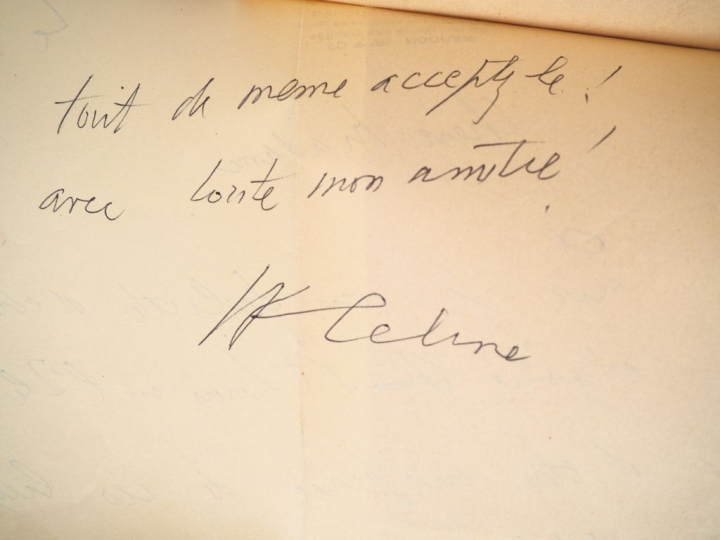 tout de meme acceptez le !
avec toute mon amitie !
LF Celine